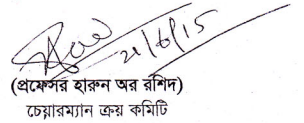 ২১/৬/১৫
(প্রফেসর হারুন অর রশিদ)
চেয়ারম্যান ক্রয় কমিটি